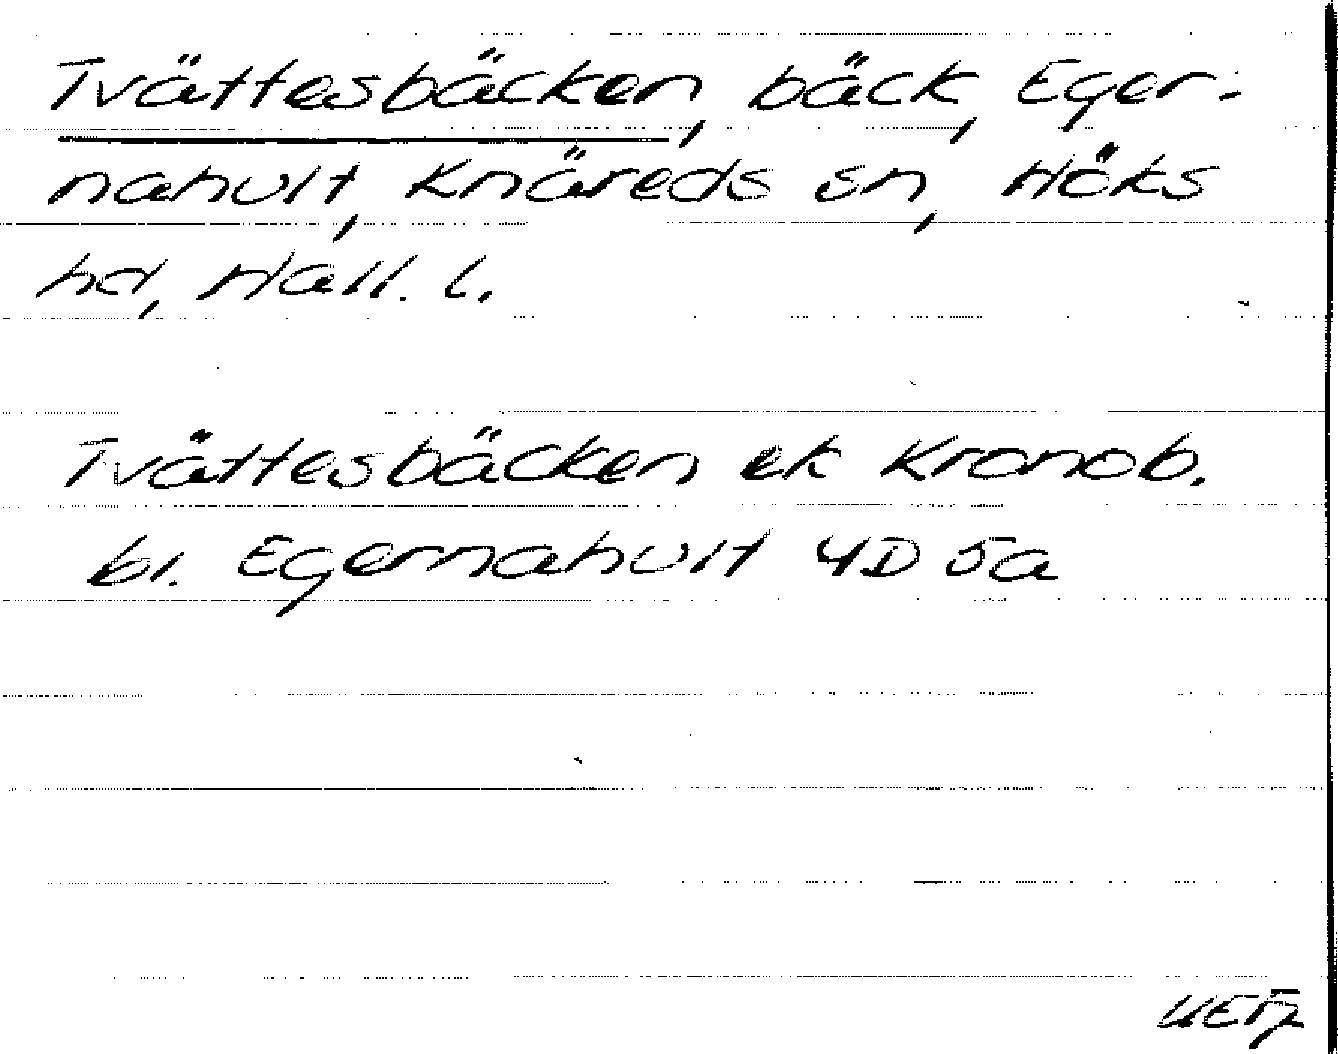 Tvättesbäcken, bäck, Eger-
nahult, Knäreds sn, Höks
hd, Hall. l.
Tvättesbäcken ek Kronob.
bl. Egernahult 4D 5a